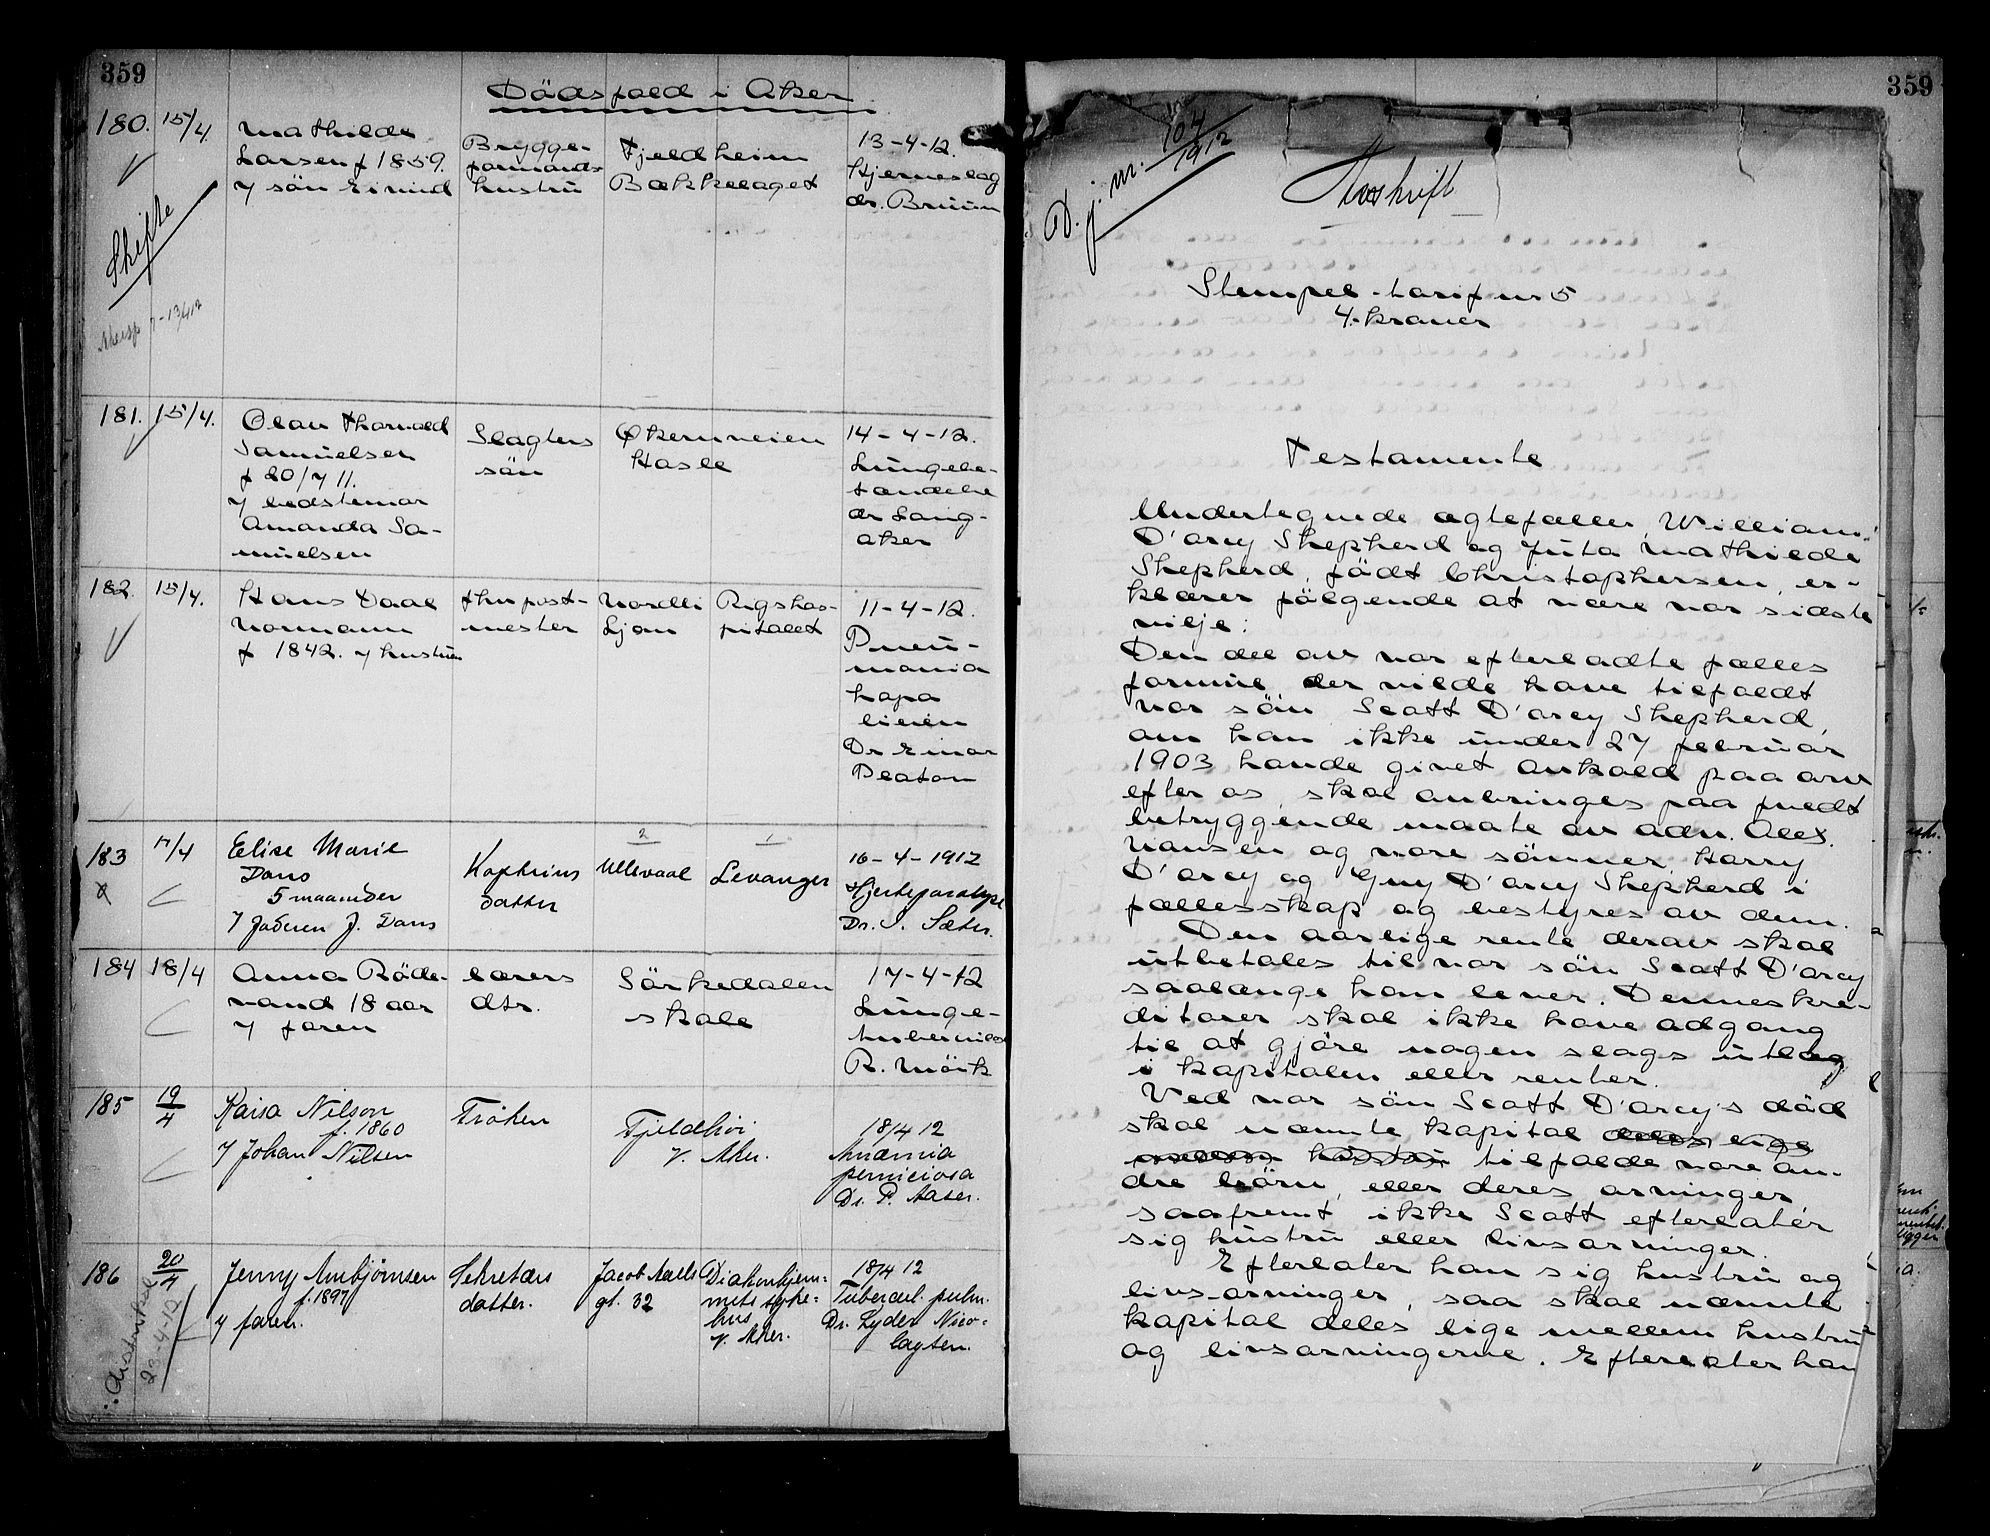 359
Dödsfald i Aker
180. 15/4.
Mathilde
Larsen f 1859.
7 sön Eivind
Brygge-
formands
hustru
Fjeldheim
Bækkelaget
13-4-12.
Hjerneslag
dr. Bruun
Skifte
181. 15/4.
Olav Thorvald
Samuelsen
f 20/7 11.
7 bedstemor
Amanda Sa-
muelsen
Slagters
sön
Økernveien
Hasle
14-4-12.
Lungebe-
tændelse
dr Lang-
aker
182. 15/4.
Hans Daae
Normann
f 1842. 7 hustruen
fhv post-
mester
Nordli
Ljan
Rigshos-
pitalet
11-4-12.
Pneu-
monia
Dr Einar
183 17/4
Elise Marie
Dans
5 maaneder
7 faderen J. Dans
datter
2
Ullevaal
1
Levanger
16-4-1912
Hjerteparalyse
Dr. S. Sæter.
184 18/4
Anna Röde-
vand 18 aar
7 faren
lærers
dtr.
Sörkedalen
skole
17-4-12
Lunge-
tuberculose
R. Mörk
185 19/4
Kaisa Nilson
f. 1860
7 Johan Nilsen
Frøken
Fjeldhöi
V. Aker.
18/4 12
Anæmia
perniciosa
Dr. P. Aaser.
186 20/4
Jenny Arnbjørnsen
f. 1897
7 faren.
Sekretærs
datter.
Jacob Aalls
gt. 32
Diakonhjem-
mets syke-
hus
V. Aker.
18/4 12
Tubercul. pulm.
Dr. Lyder Nico-
laysen.
23-4-12
359
D. j. nr. 104/1912
Avskrift
Stempel-tarif nr 5
4. kroner
Testamente
Undertegnede egtefæller, William
D'arcy Shepherd og Juta Mathilde
Shepherd, födt Christophersen, er-
klærer fölgende at være vor sidste
vilje:
Den del av vor efterladte fælles
formue, der vilde have tilfaldt
vor sön Scott D'arcy Shepherd,
om han ikke under 27 februar
1903 havde givet avkald paa arv
efter os, skal anbringes paa fuldt
betryggende maate av adv. Alex.
Nansen og vore sönner Harry
D'arcy og Guy D'arcy Shepherd i
fællesskap og bestyres av dem.
Den aarlige rente derav skal
utbetales til vor sön Scott D'arcy
saalænge han lever. Dennes kre-
ditorer skal ikke have adgang
til at gjöre nogen slags utlæg
i kapitalen eller renter.
Ved vor sön Scott D'arcy's död
skal nævnte kapital deles lige
mellem hustru tilfalde vore an-
dre börn, eller deres arvinger
saafremt ikke Scott efterlater
sig hustru eller livsarvinger.
Efterlater han sig hustru og
livsarvinger, saa skal nævnte
kapital deles lige mellem hustru
og livsarvingerne. Efterlater han